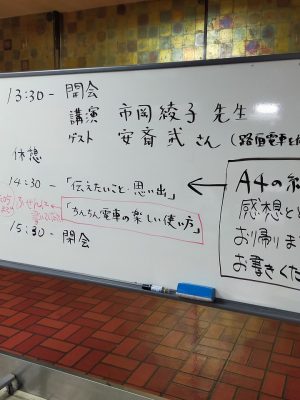 13:30- 開会
講演 市岡綾子先生
ゲスト 安斎武さん(路面電車を
休憩
14:30-「伝えたいこと・思い出」
「ちんちん電車の楽しい使い方」
15:30-閉会
A4の紙
感想と
お帰りま
お書きくだ